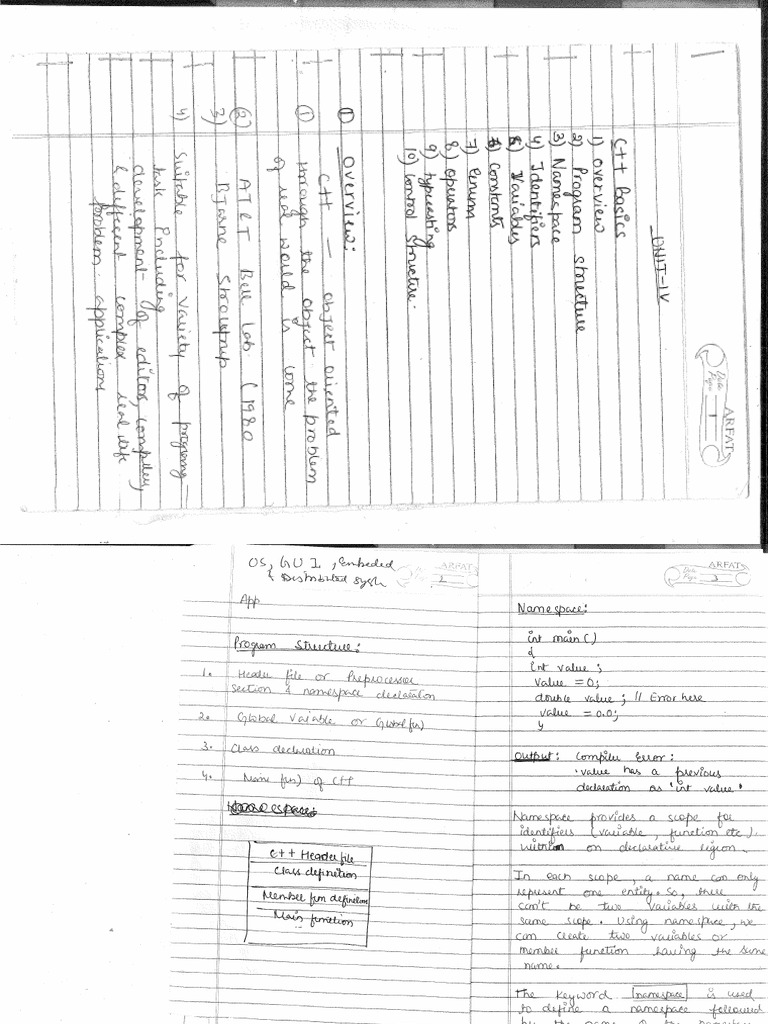 ARFAT
Date
Page 1
UNIT-IV
C++ Basics
1) Overview
2) Program structure
3) Namespace
4) Identifiers
5) Variables
6) Constants
7) Enum
8) Operator
9) Typecasting
10) Control structure.
① Overview:
C++ — object oriented
① through the object the problem
of real world is come
② AT&T Bell Lab (1980
3) Bjarne Stroutrup
4) Suitable for variety of programg
task including
development of editor, compiler,
& different complex real life
problem applications
OS, GUI, Embeded
& Distributed sysh
ARFAT
2
App
Program Structure:
1. Header file or Preprocessor
section & namespace declaration
2. Global Variable or Global fn)
3. Class declaration
4. Main fn) of C++
Namespace:
C++ Header file
Class definition
Member fun definition
Main function
ARFAT
Date
Page 3
Namespace:
int main()
{
int value;
value = 0;
double value; // Error here
value = 0.0;
}
Output: Compiler Error:
'value has a previous
declaration as 'int value'
Namespace provides a scope for
identifiers (variable, function etc).
within on declarative region.
In each scope, a name can only
represent one entity. So, there
can't be two variables with the
same scope. Using namespace, we
can create two variables or
member function having the same
name.
The keyword namespace is used
to define a namespace followed
by the name of the